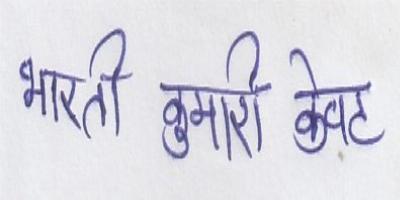 भारती कुमारी केवट